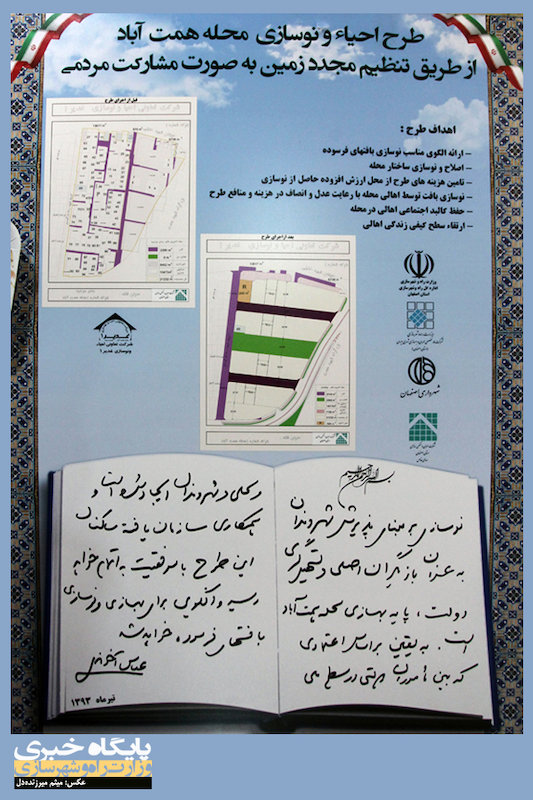 طرح احیاء و نوسازی محله همت آباد
از طریق تنظیم مجدد زمین به صورت مشارکت مردمی
قبل از اجرای طرح
اهداف طرح :
– ارائه الگوی مناسب نوسازی بافتهای فرسوده
– اصلاح و نوسازی ساختار محله
– تامین هزینه های طرح از محل ارزش افزوده حاصل از نوسازی
– نوسازی بافت توسط اهالی محله با رعایت عدل و انصاف در هزینه و منافع طرح
– حفظ کالبد اجتماعی اهالی در محله
– ارتقاء سطح کیفی زندگی اهالی
بعد از اجرای طرح
وزارت راه و شهرسازی
اداره کل راه و شهرسازی
استان اصفهان
شرکت تعاونی احیاء
ونوسازی غدیر ۱
شهرداری اصفهان
بسم الله الرحمن الرحیم
نوسازی بر مبنای پذیرش شهروندان
به عنوان بازیگران اصلی و تسهیلگری
دولت، پایه بهسازی محله همت آباد
است. به یقین براساس اعتمادی
که بین مأموران دولتی در سطح ملی
و محلی و شهروندان ایجاد شده است و
همکاری سازمان یافته ساکنان
این طرح با موفقیت به اتمام خواهد
رسید و الگویی برای بهسازی و نوسازی
بافتهای فرسوده خواهد شد
عباس آخوندی
تیرماه ۱۳۹۳
پایگاه خبری
وزارت راه و شهرسازی
عکس: میثم میرزنده‌دل